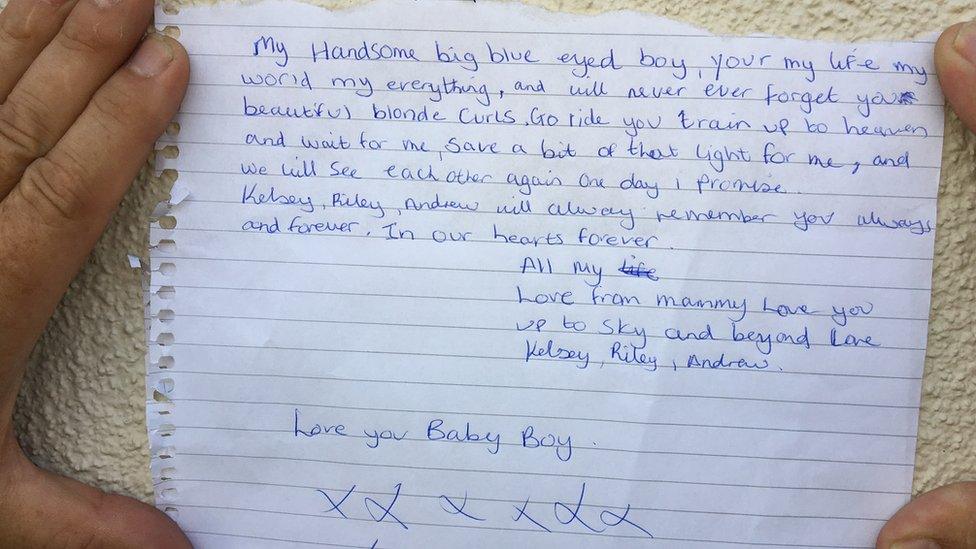 My Handsome big blue eyed boy, your my life my
world my everything, and will never ever forget you
beautiful blonde curls. Go ride you train up to heaven
and wait for me, Save a bit of that light for me, and
we will see each other again one day i promise.
Kelsey, Riley, Andrew will alway remember you always
and forever. In our hearts forever.
All my life
Love from mammy Love you
up to sky and beyond Love
Kelsey, Riley, Andrew.
Love you Baby Boy.
x x x x x x